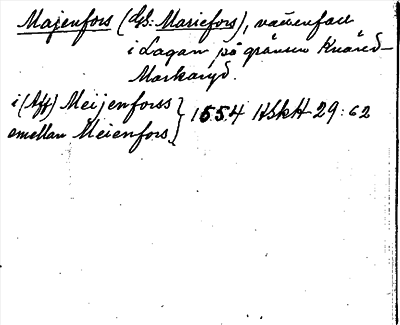 Majenfors (Gs: Mariefors), vattenfall
i Lagan på gränsen Knäred–
Markaryd.
i (Aff) Meijenforss } 1554 HSkH 29:62
emellan Meienfors